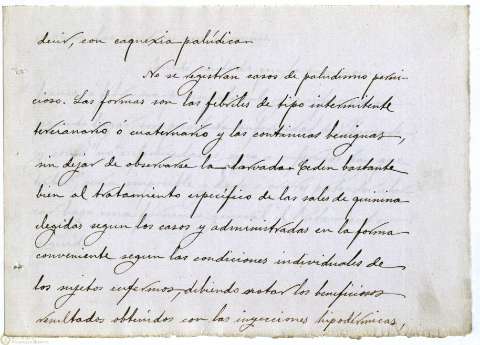 decir, con caquexia palúdica.
No se registran casos de paludismo perni-
cioso. Las formas son las febriles de tipo intermitente
tercianario ó cuaternario y las continuas benignas,
sin dejar de observarse la larvada. Ceden bastante
bien al tratamiento específico de las sales de quinina
elegidas segun los casos y administradas en la forma
conveniente segun las condiciones individuales de
los sujetos enfermos, debiendo notar los beneficiosos
resultados obtenidos con las inyecciones hipodérmicas,